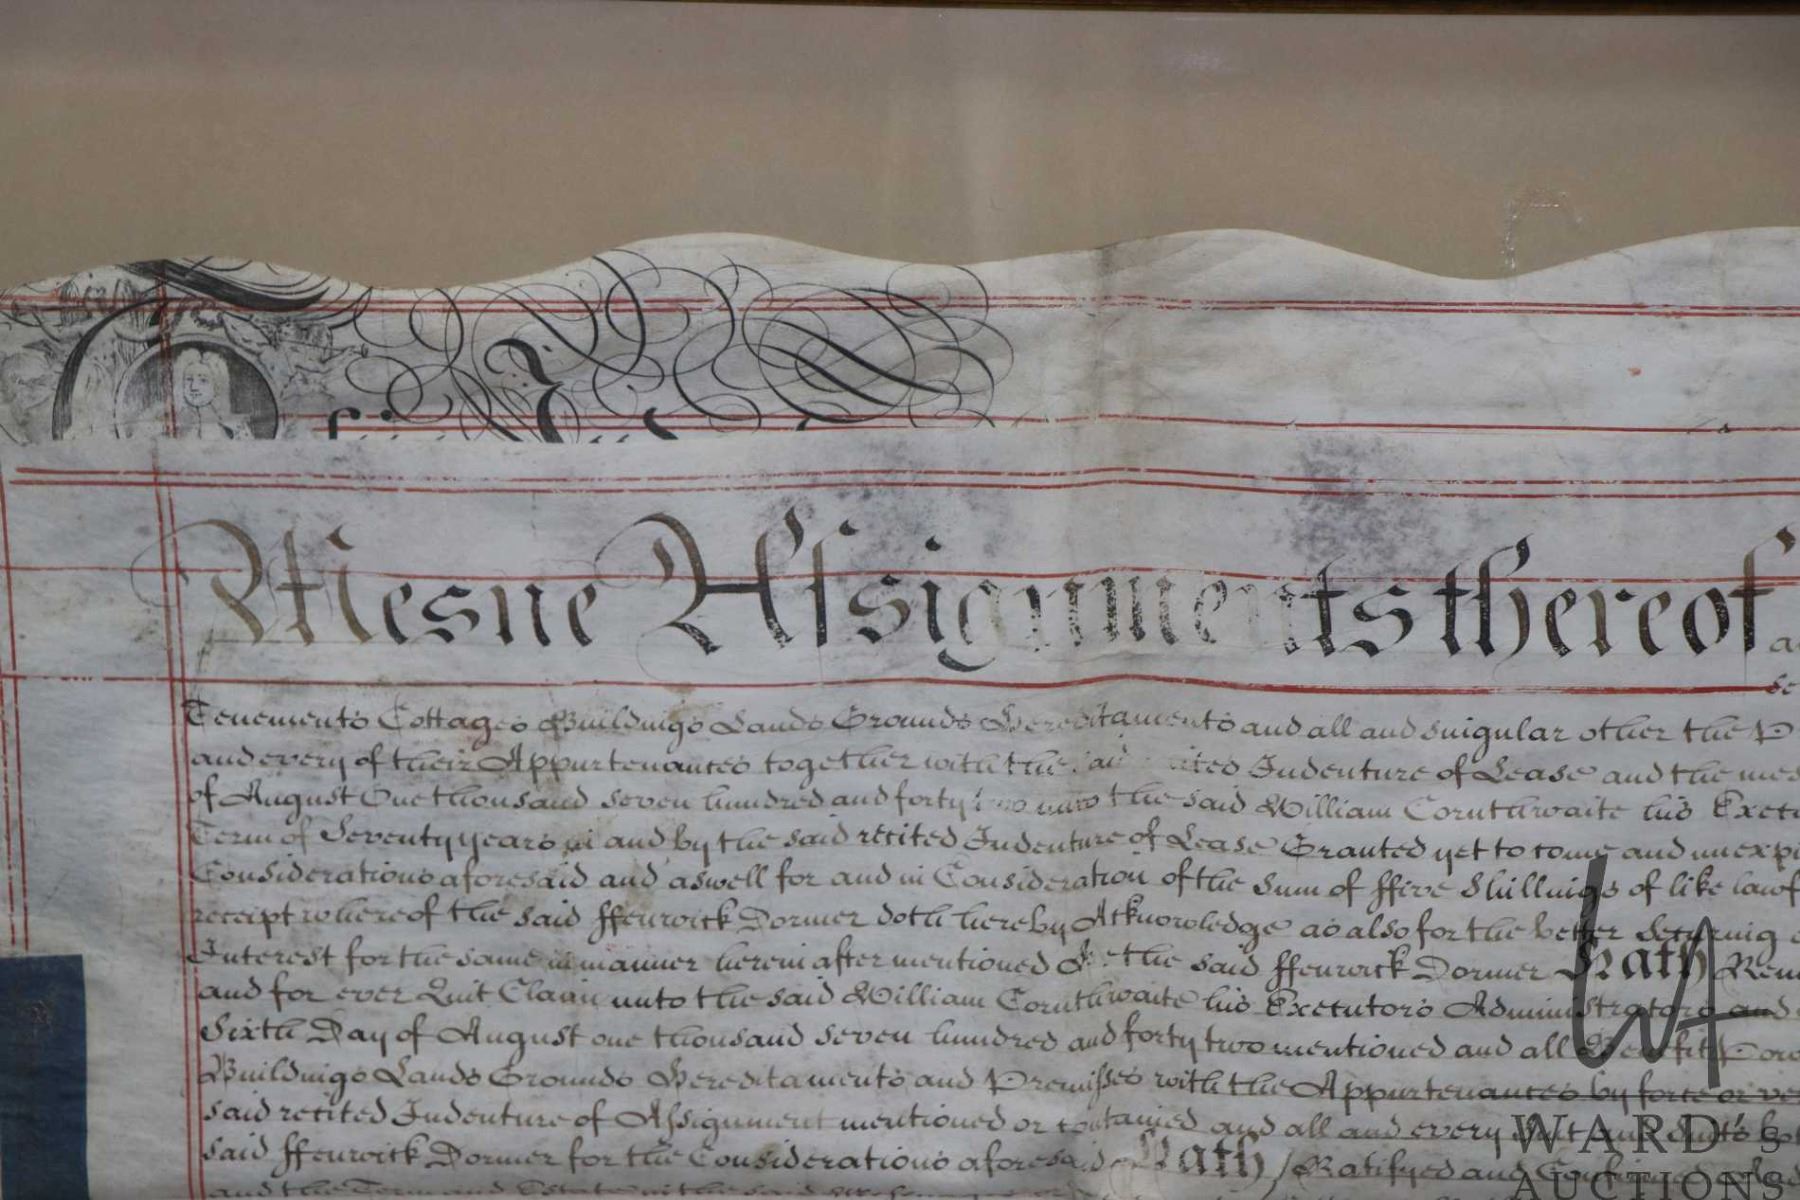 Mesne Assignments thereof
Tenements Cottages Buildings Lands Grounds Hereditaments and all and singular other the P
and every of their Appurtenances together with the said recited Indenture of Lease and the
of August One thousand seven hundred and forty two unto the said William Cornthwaite his
Term of Seventy years in and by the said recited Indenture of Lease Granted yet to come and
Considerations aforesaid and aswell for and in Consideration of the Sum of ffive Shillings of like
receipt whereof the said ffenwick Dormer doth hereby Acknowledge as also for the better Securing
Interest for the same in manner herein after mentioned He the said ffenwick Dormer Hath
and for ever Quit Claim unto the said William Cornthwaite his Executors Administrators and
Sixth Day of August one thousand seven hundred and forty two mentioned and all Benefit
Buildings Lands Grounds Hereditaments and Premisses with the Appurtenances by force or
said recited Indenture of Assignment mentioned or contained and all and every
said ffenwick Dormer for the Considerations aforesaid Hath Ratifyed and
and the Term and Estate in the said
WARD'S
AUCTIONS